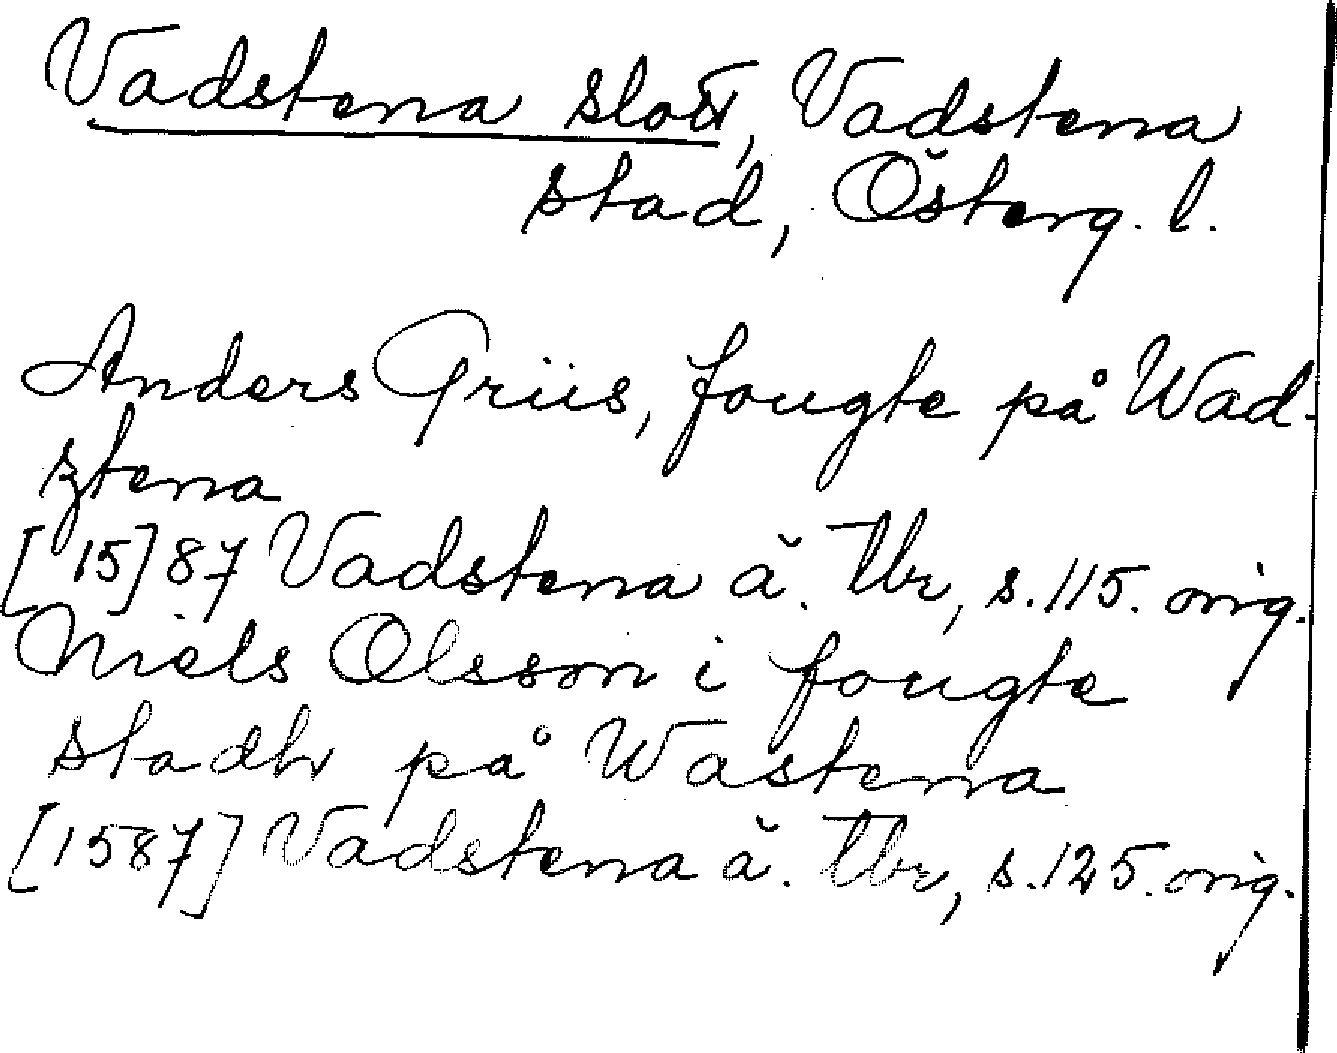 Vadstena slott, Vadstena
stad, Österg. l.
Anders Griis, fougte på Wad-
ztena
[15]87 Vadstena ä. tbr, s. 115. orig.
Niels Olsson i fougte
stadh på Wastena
[1587] Vadstena ä. tbr, s. 125. orig.